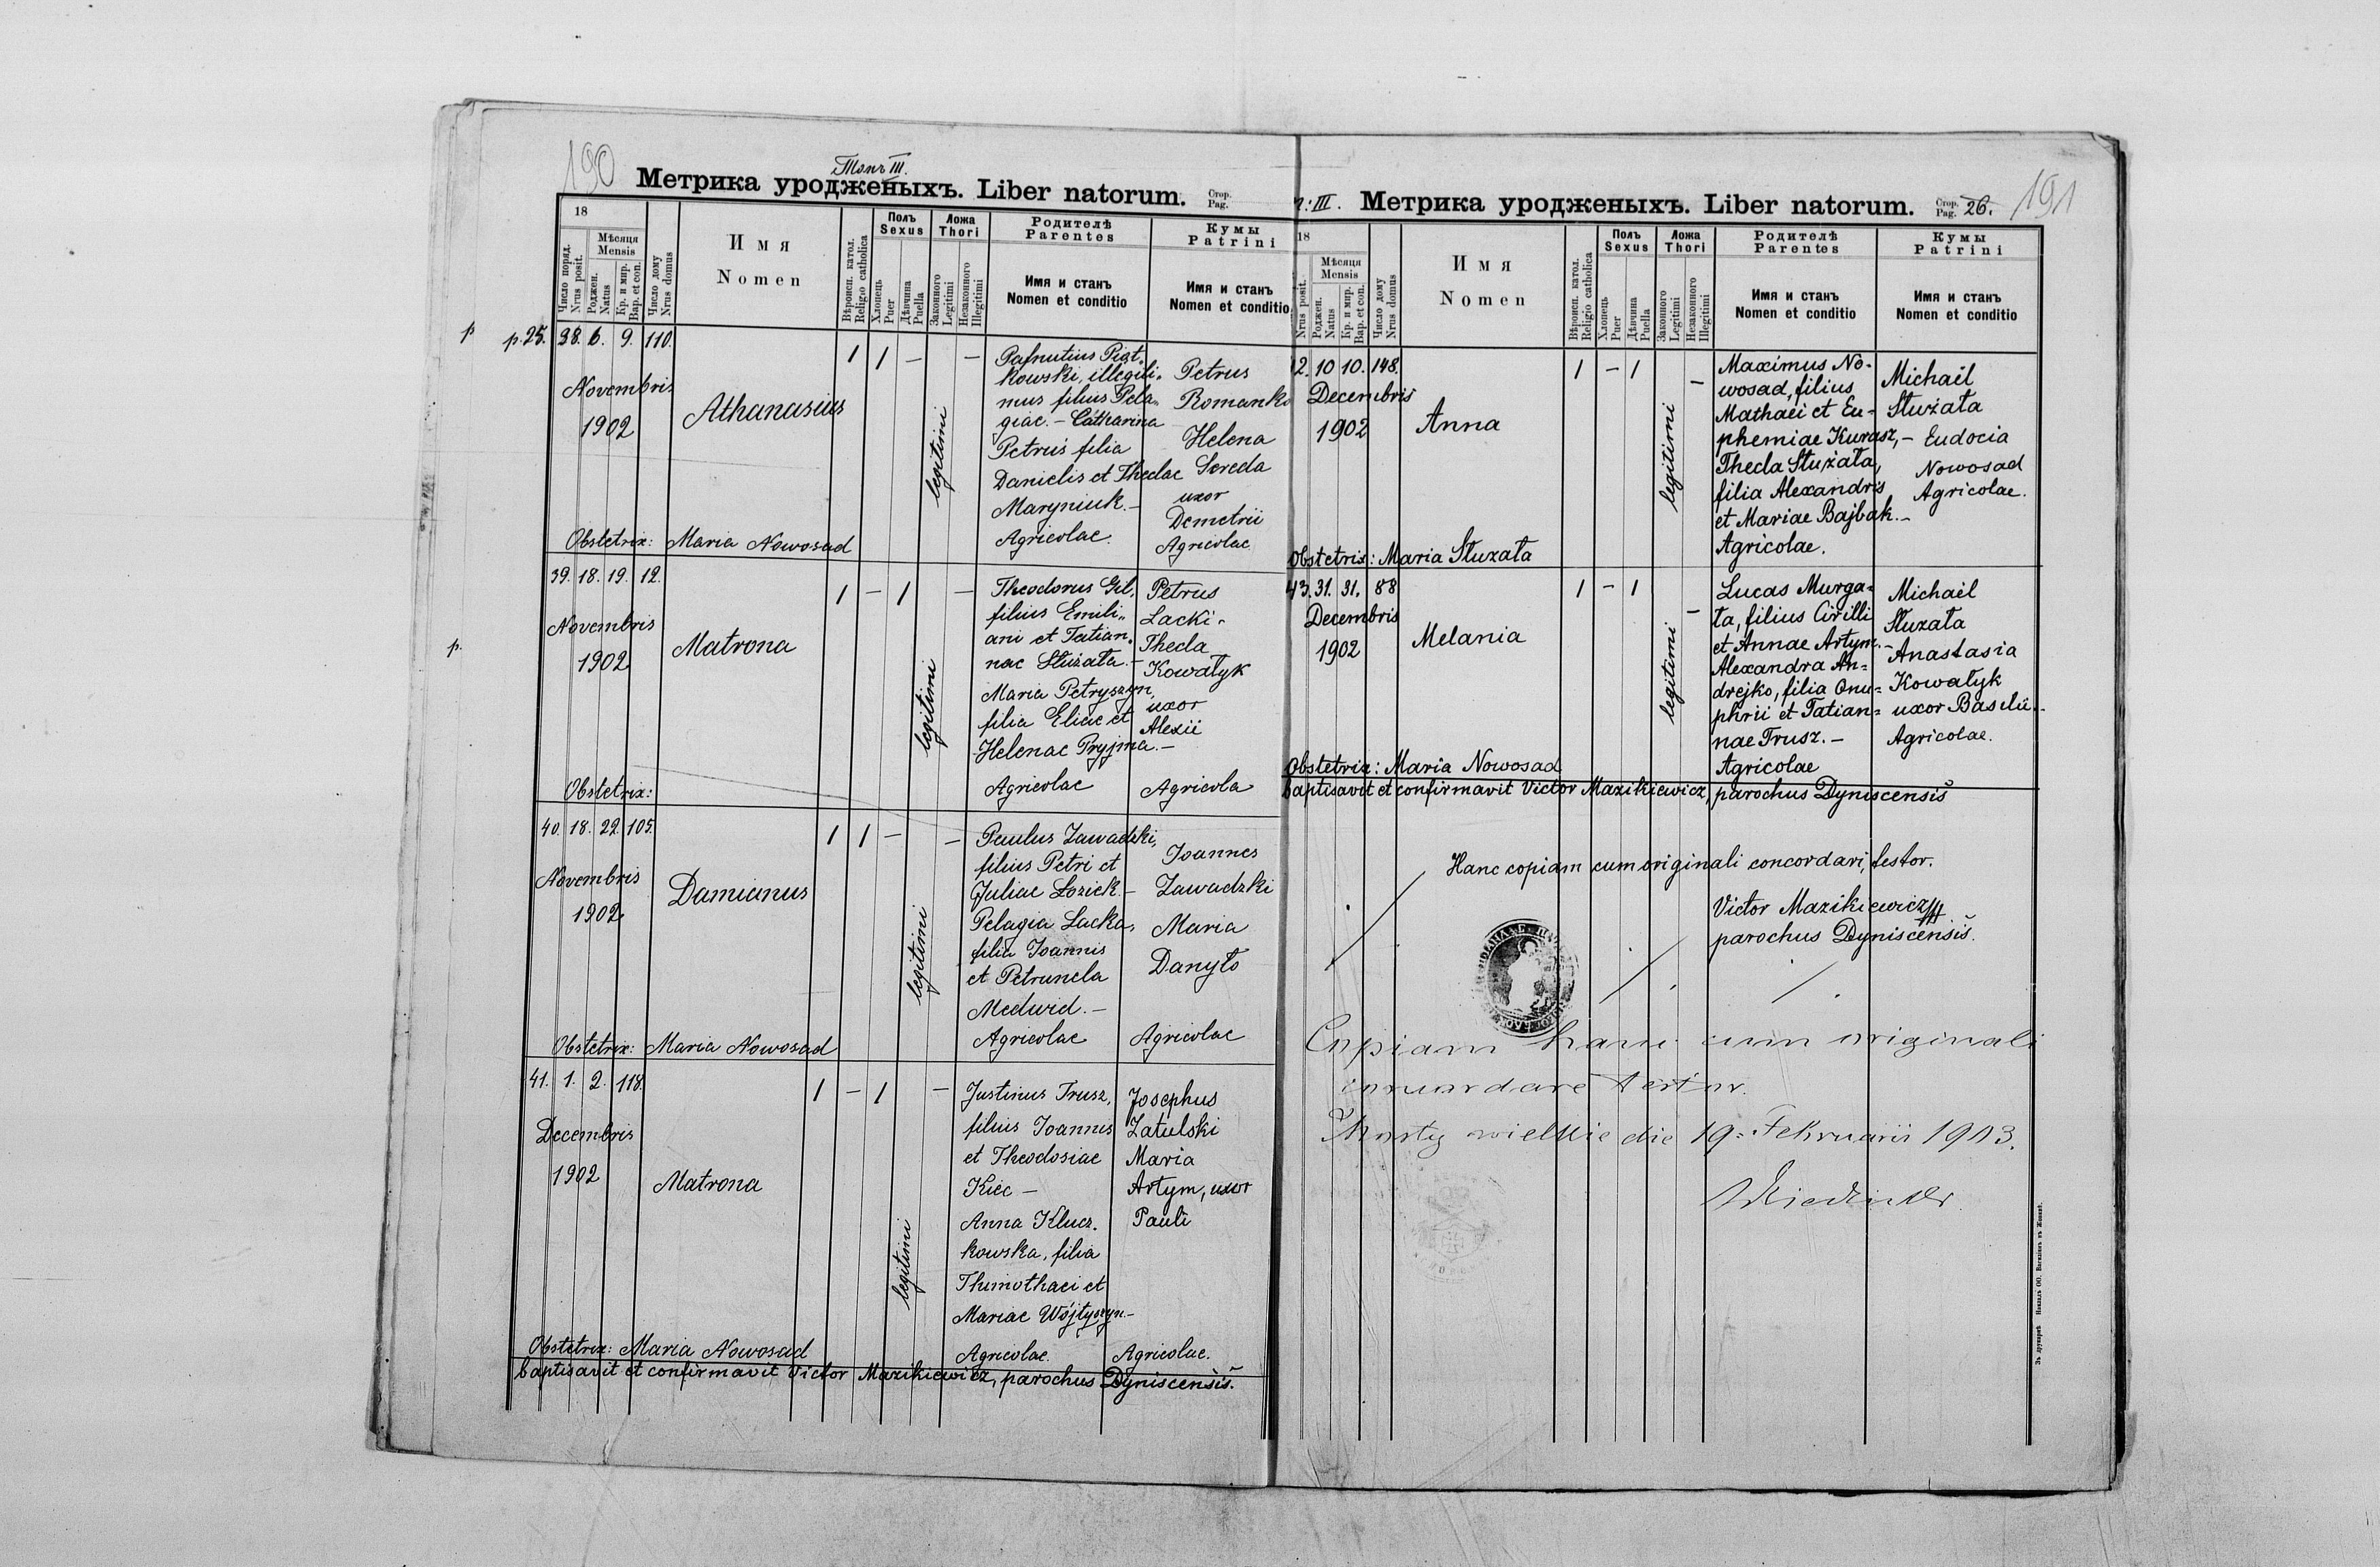 190
Томъ III.
Метрика уродженыхъ. Liber natorum.
Стор.
Pag.
18
Число поряд.
Nrus posit.
Мѣсяця
Mensis
Роджен.
Natus
Кр. и мир.
Bap. et con.
Число дому
Nrus domus
Имя
Nomen
Вѣроисп. катол.
Religio catholica
Полъ
Sexus
Хлопець
Puer
Дѣвчина
Puella
Ложа
Thori
Законного
Legitimi
Незаконного
Illegitimi
Родителѣ
Parentes
Имя и станъ
Nomen et conditio
Кумы
Patrini
Имя и станъ
Nomen et conditio
p
p. 25.
38. 6. 9. 110.
Novembris
1902
Athanasius
1 1 — —
legitimi
Pafnutius Piąt„
kowski, illegiti„
mus filius Pela„
giae. - Catharina
Petrus filia
Danielis et Theclae
Maryniuk. —
Agricolae.
Petrus
Romanko
Helena
Sereda
uxor
Demetrii
Agricolae
Obstetrix: Maria Nowosad
39. 18. 19. 12.
Novembris
1902
p.
Matrona
1 — 1 —
legitimi
Theodorus Gil,
filius Emili„
ani et Tatian„
nae Służała. —
Maria Petryszyn,
filia Eliae et
Helenae Pryjma. —
Agricolae
Petrus
Lacki -
Thecla
Kowałyk
uxor
Alexii
Agricola
Obstetrix:
40. 18. 22. 105.
Novembris
1902.
Damianus
1 1 — —
legitimi
Paulus Zawadzki,
filius Petri et
Juliae Łozick —
Pelagia Lacka,
filia Joannis
et Petrunela
Medwid. —
Agricolae
Joannes
Zawadzki
Maria
Danyło
Agricolae
Obstetrix: Maria Nowosad
41. 1. 2. 118.
Decembris
1902
Matrona
1 — 1 —
legitimi
Justinus Trusz,
filius Joannis
et Theodosiae
Kiec —
Anna Klucz.
kowska, filia
Thimothaei et
Mariae Wójtyszyn. —
Agricolae.
Josephus
Zatulski
Maria
Artym, uxor
Pauli
Agricolae.
Obstetrix: Maria Nowosad
baptisavit et confirmavit Victor Mazikiewicz, parochus Dyniscensis.
III. Метрика уродженыхъ. Liber natorum.
Стор.
Pag. 26.
191
18
Nrus posit.
Мѣсяця
Mensis
Роджен.
Natus
Кр. и мир.
Bap. et con.
Число дому
Nrus domus
Имя
Nomen
Вѣроисп. катол.
Religio catholica
Полъ
Sexus
Хлопець
Puer
Дѣвчина
Puella
Ложа
Thori
Законного
Legitimi
Незаконного
Illegitimi
Родителѣ
Parentes
Имя и станъ
Nomen et conditio
Кумы
Patrini
Имя и станъ
Nomen et conditio
2. 10 10. 148.
Decembris
1902
Anna
1 — 1 —
legitimi
Maximus No-
wosad, filius
Mathaei et Eu-
phemiae Kurasz, —
Thecla Służała,
filia Alexandris
et Mariae Bajbak. —
Agricolae.
Michaël
Służała
Eudocia
Nowosad
Agricolae.
Obstetrix: Maria Służała
43. 31. 31. 88
Decembris
1902
Melania
1 — 1 —
legitimi
Lucas Murga=
ła, filius Cirilli
et Annae Artym. —
Alexandra An=
drejko, filia Onu=
phrii et Tatian=
nae Trusz. —
Agricolae
Michaël
Służała
Anastasia
Kowałyk
uxor Basilii. -
Agricolae.
Obstetrix: Maria Nowosad
baptisavit et confirmavit Victor Mazikiewicz, parochus Dyniscensis
Hanc copiam cum originali concordari, testor.
Victor Mazikiewicz
parochus Dyniscensis.
Copiam hanc cum originali
concordare testor.
wielkie die 19. Februarii 1903.